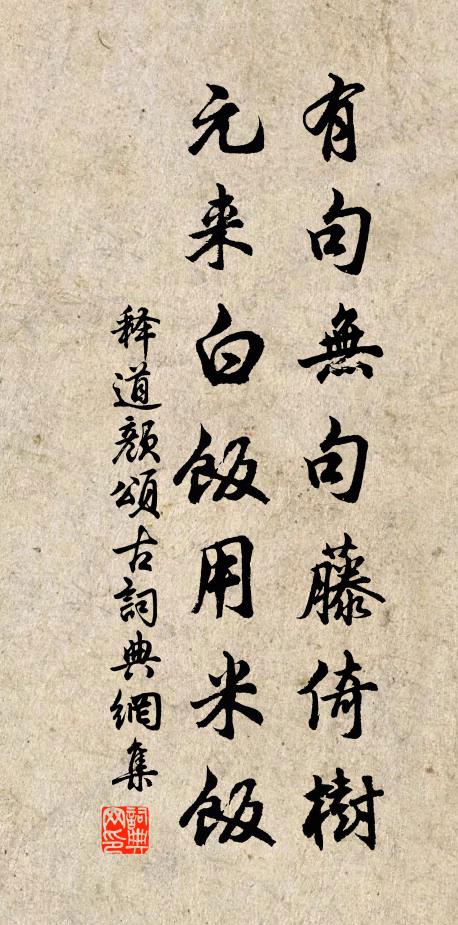 有句無句藤倚樹
元来白飯用米飯
释道颜頌古詞典網集
詞典网印